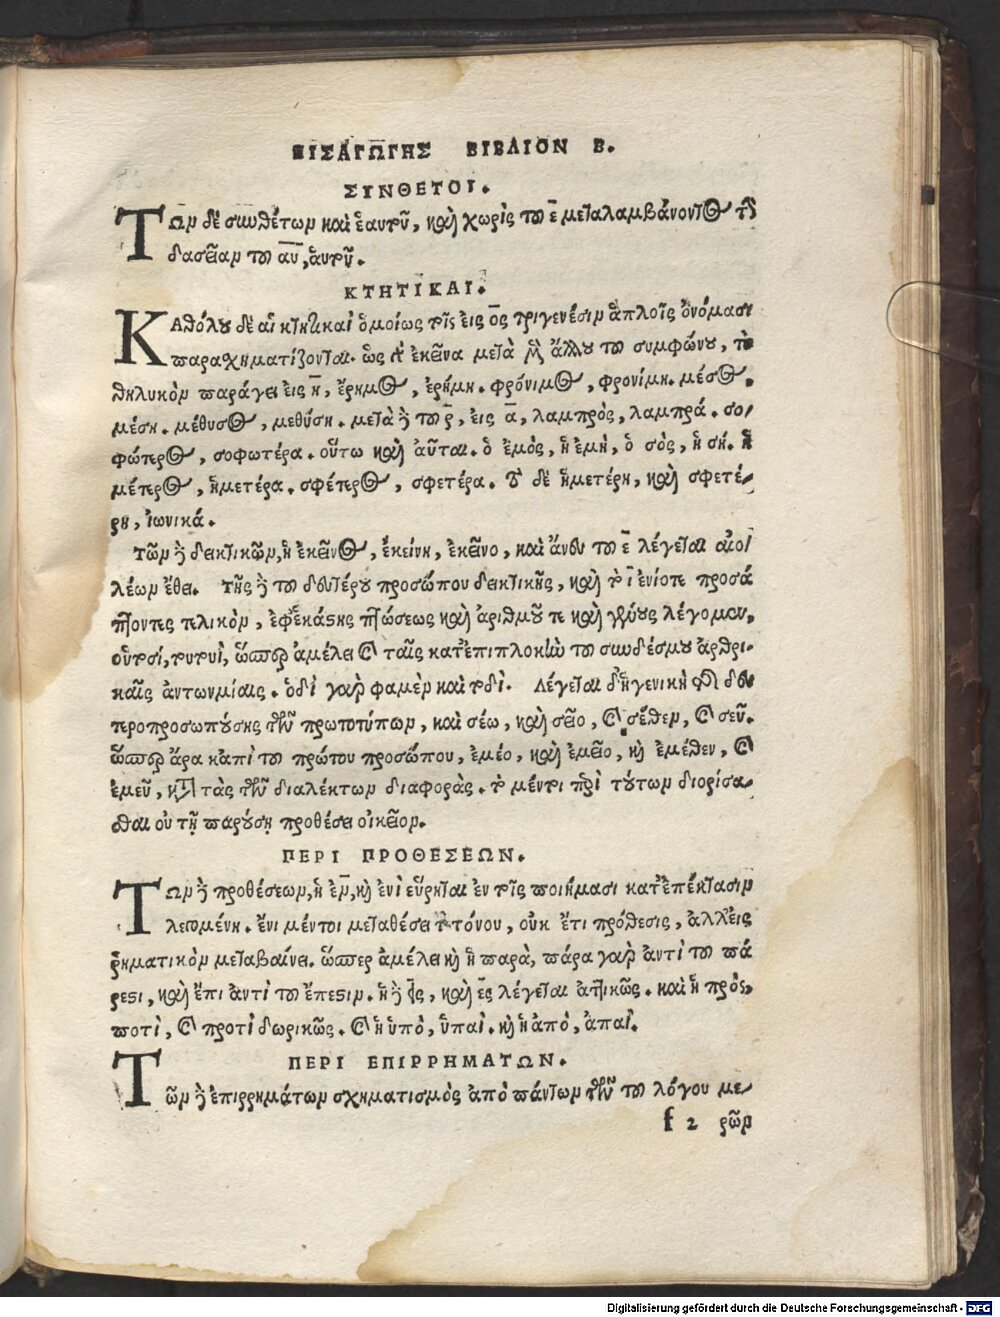 ΕΙΣΑΓΩΓΗΣ ΒΙΒΛΙΟΝ Β.
ΣΥΝΘΕΤΟΙ.
Τῶν δὲ συνθέτων καὶ ἑαυτοῦ, καὶ χωρὶς τοῦ ε̄ μεταλαμβάνοντος τὴν
δασεῖαν τοῦ αῡ, αὑτοῦ.
ΚΤΗΤΙΚΑΙ.
Καθόλου δὲ αἱ κτητικαὶ ὁμοίως τοῖς εἰς ος τριγενέσιν ἁπλοῖς ὀνόμασι
παρασχηματίζονται. ὡς γὰρ ἐκεῖνα μετὰ μὲν ἄλλου του συμφώνου, τὸ
θηλυκὸν παράγει εἰς η̄, ἔρημος, ἐρήμη. φρόνιμος, φρονίμη. μέσος,
μέση. μέθυσος, μεθύση. μετὰ δὲ τοῦ ρ̄, εἰς ᾱ, λαμπρὸς, λαμπρά. σο-
φώτερος, σοφωτέρα. οὕτω καὶ αὗται. ὁ ἐμὸς, ἡ ἐμὴ, ὁ σὸς, ἡ σή. ἡ
μέτερος, ἡμετέρα. σφέτερος, σφετέρα. τὸ δὲ ἡμετέρη, καὶ σφετέ-
ρη, ἰωνικά.
Τῶν δὲ δεικτικῶν, ἡ ἐκεῖνος, ἐκείνη, ἐκεῖνο, καὶ ἄνευ τοῦ ε̄ λέγεται αἰολ
λέων ἔθει. Τῆς δὲ τοῦ δευτέρου προσώπου δεικτικῆς, καὶ τὸ ῑ ἐνίοτε προσά
πτοντες τελικὸν, ἐφ᾽ ἑκάστης πτώσεως καὶ ἀριθμοῦ τε καὶ γένους λέγομεν,
οὑτοσί, τουτουί, ὥσπερ ἀμέλει καὶ ταῖς κατ᾽ ἐπιπλοκὴν τοῦ συνδέσμου ἀρθρι-
καῖς ἀντωνυμίαις. ὁδὶ γὰρ φαμὲν καὶ τοδί. Λέγεται δ᾽ ἡ γενικὴ τῆς δευ
τεροπροσωπούσης τῶν πρωτοτύπων, καὶ σέω, καὶ σεῖο, καὶ σέθεν, καὶ σεῦ.
ὥσπερ ἄρα κἀπὶ τοῦ πρώτου προσώπου, ἐμέο, καὶ ἐμεῖο, καὶ ἐμέθεν, καὶ
ἐμεῦ, κατὰ τὰς τῶν διαλέκτων διαφοράς. τὸ μέντοι περὶ τούτων διορίσα-
σθαι οὐ τῇ παρούσῃ προθέσει οἰκεῖον.
ΠΕΡΙ ΠΡΟΘΕΣΕΩΝ.
Τῶν δὲ προθέσεων, ἡ ἐν, καὶ ἐνὶ εὕρηται ἐν τοῖς ποιήμασι κατ᾽ ἐπέκτασιν
λεγομένη. ἔνι μέντοι μεταθέσει τοῦ τόνου, οὐκ ἔτι πρόθεσις, ἀλλ᾽ εἰς
ῥηματικὸν μεταβαίνει. ὥσπερ ἀμέλει καὶ ἡ παρὰ, πάρα γὰρ ἀντὶ τοῦ πά
ρεστι, καὶ ἔπι ἀντὶ τοῦ ἔπεστιν. ἡ δὲ εἰς, καὶ ἐς λέγεται ἀττικῶς. καὶ ἡ πρὸς,
ποτὶ, καὶ προτὶ δωρικῶς. καὶ ἡ ὑπὸ, ὑπαί. καὶ ἡ ἀπὸ, ἀπαί.
ΠΕΡΙ ΕΠΙΡΡΗΜΑΤΩΝ.
Τῶν δὲ ἐπιρρημάτων σχηματισμὸς ἀπὸ πάντων τῶν τοῦ λόγου με-
f 2 ρῶν
Digitalisierung gefördert durch die Deutsche Forschungsgemeinschaft - DFG